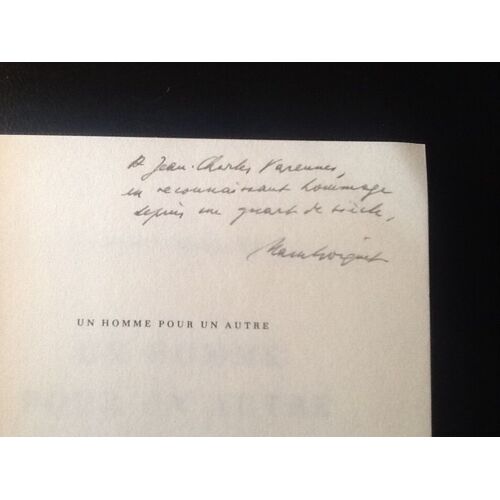 A Jean-Charles Varennes,
en reconnaissant hommage
depuis un quart de siècle,
UN HOMME POUR UN AUTRE